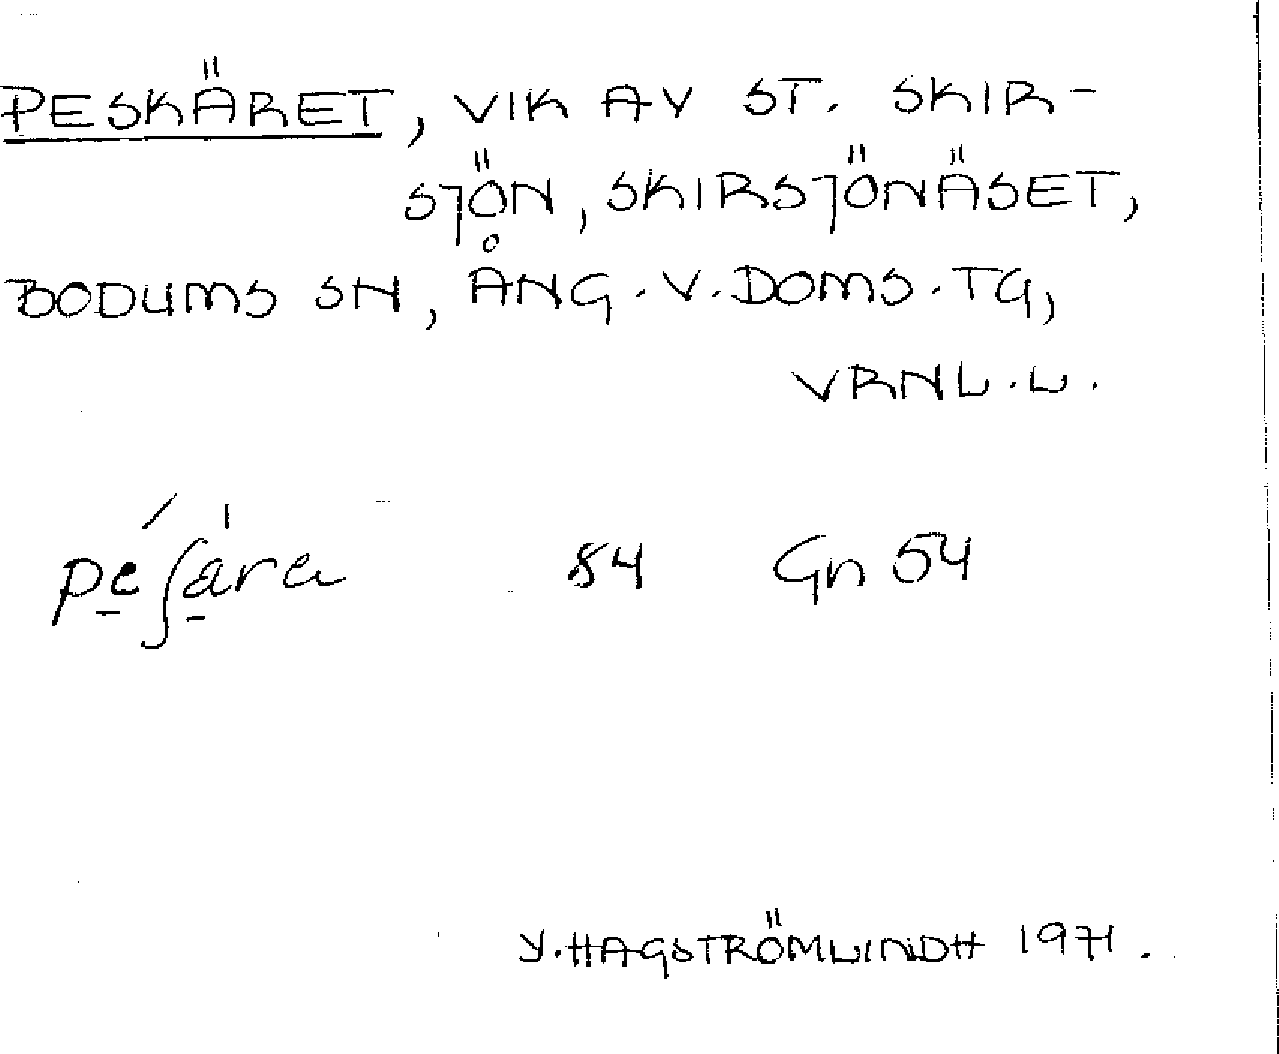 PESKÄRET, VIK AV ST. SKIR-
SJÖN, SKIRSJÖNÄSET,
BODUMS SN, ÅNG. V. DOMS. TG,
VRNL. L.
pe̱´ʃa̱̍ra 84 Gn 54
Y. HAGSTRÖMLINDH 1971.